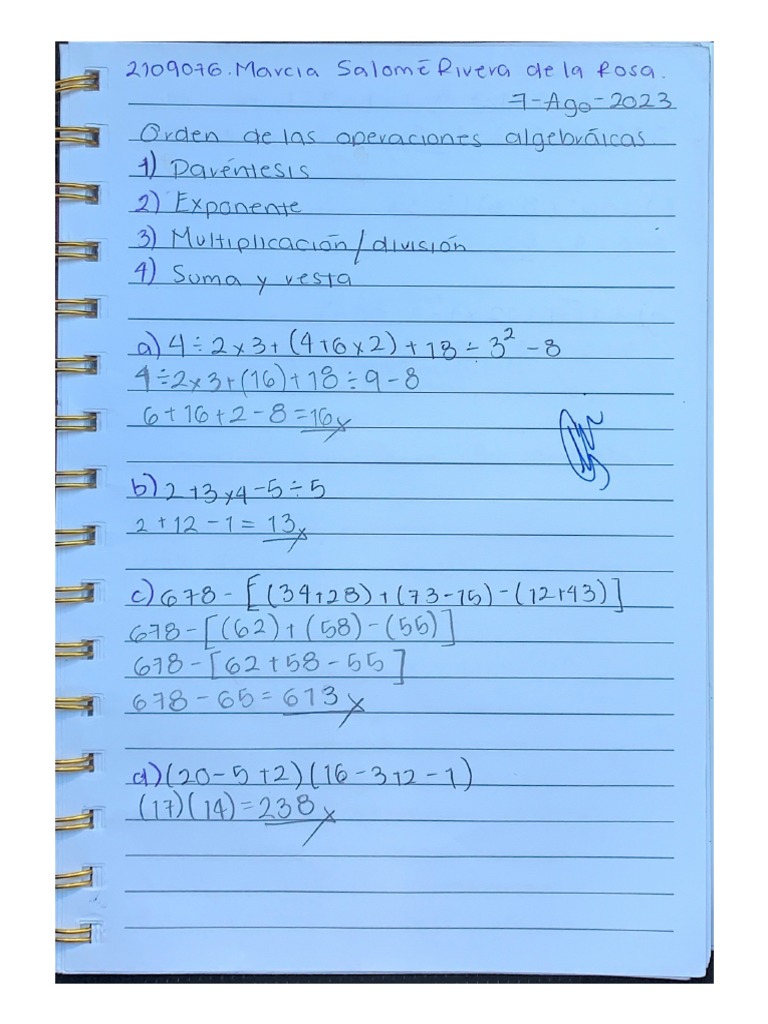 2109076. Marcia Salomé Rivera de la Rosa.
7-Ago-2023
Orden de las operaciones algebráicas
1) Paréntesis
2) Exponente
3) Multiplicación/división
4) Suma y resta
a) 4÷2x3+(4+6x2)+18÷3²-8
4÷2x3+(16)+18÷9-8
6+16+2-8=16
b) 2+3x4-5÷5
2+12-1=13
c) 678-[(34+28)+(73-15)-(12+43)]
678-[(62)+(58)-(55)]
678-[62+58-55]
678-65=613
d) (20-5+2)(16-3+2-1)
(17)(14)=238